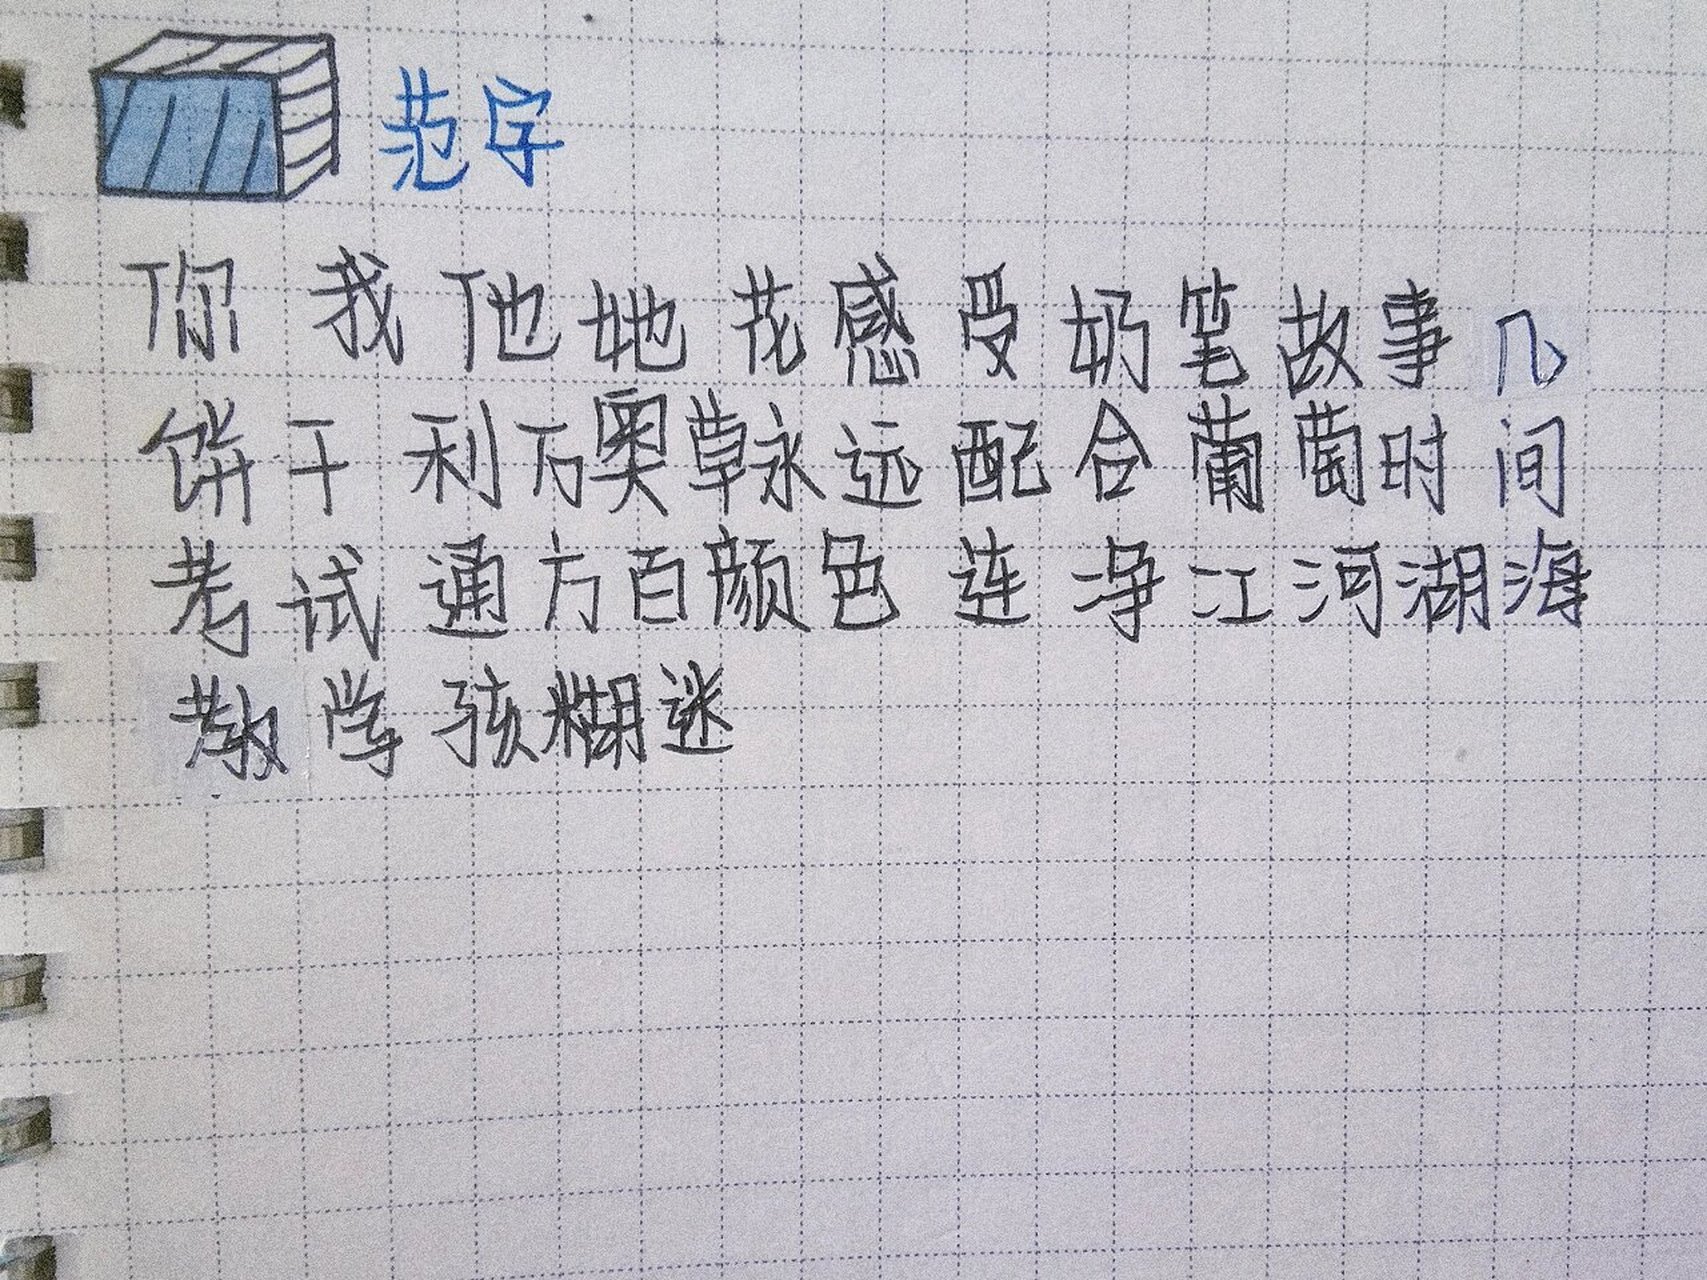 范字
你 我 他 她 花 感 受 奶 笔 故 事 几
饼 干 利 万 奥 草 永 远 配 合 葡 萄 时 间
考 试 通 方 百 颜 色 连 净 江 河 湖 海
教 学 孩 糊 迷